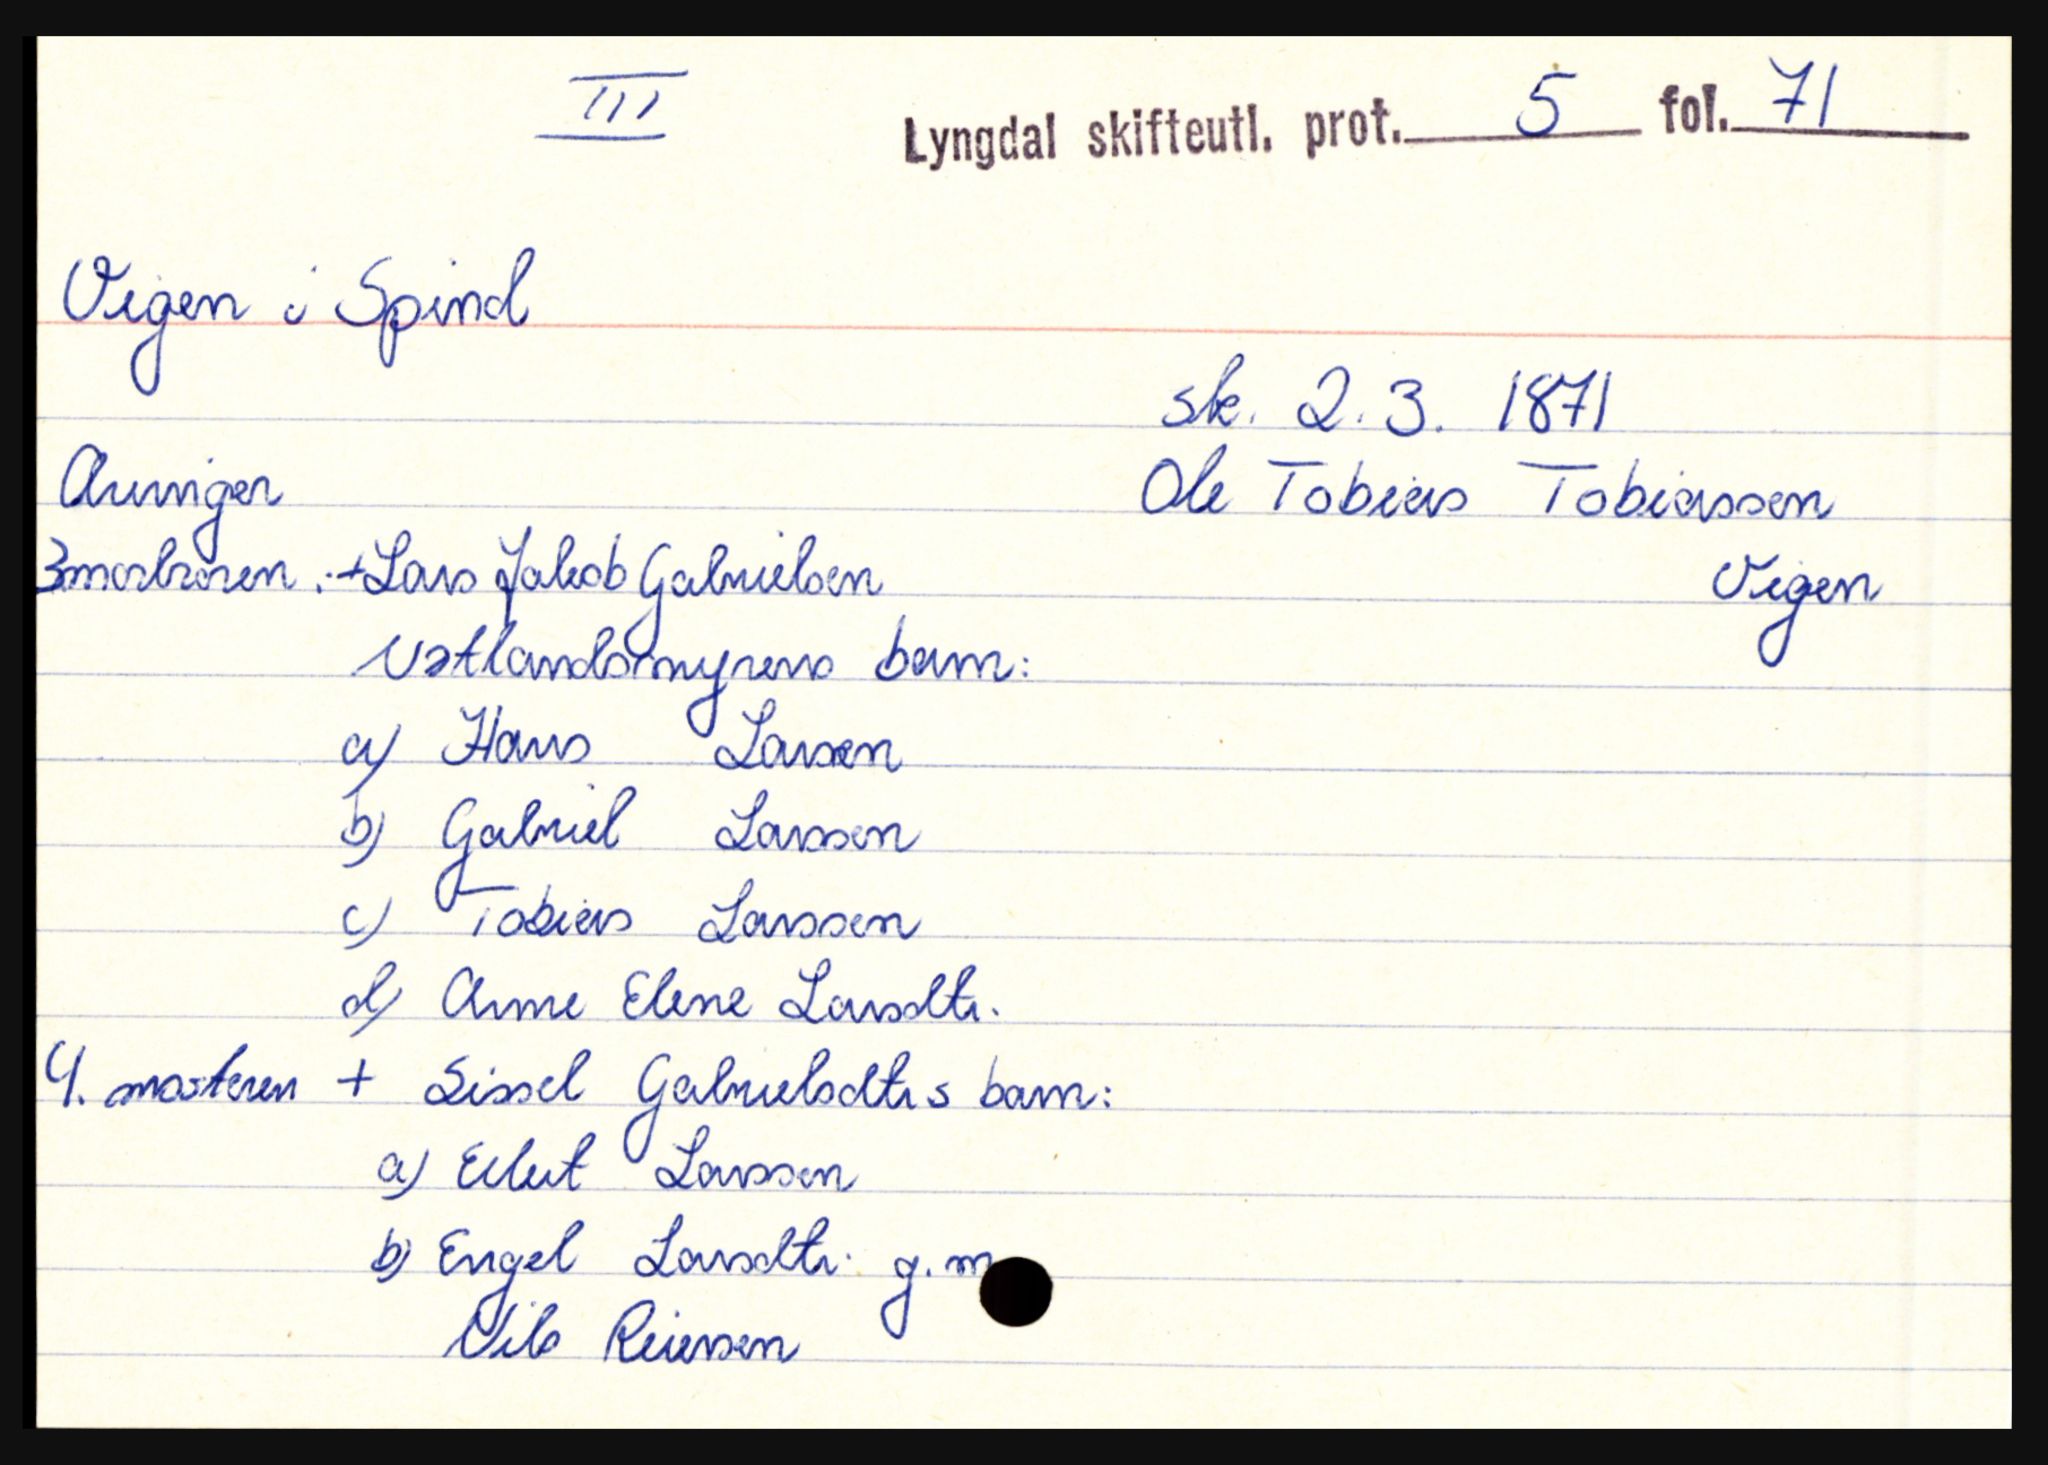 III
Lyngdal skifteutl. prot. 5 fol. 71
Vigen i Spind
sk. 2.3. 1871
Arvinger
Ole Tobias Tobiassen
3 morbroren :+ Lars Jakob Gabrielsen
Vigen
Vatlandsmyrens barn:
a) Hans Larsen
b) Gabriel Larssen
c) Tobias Larssen
d) Anne Elene Larsdtr.
4. mosteren + Sissel Gabrielsdtrs barn:
a) Eilert Larssen
b) Engel Larsdtr. g.m
Nils Reiersen